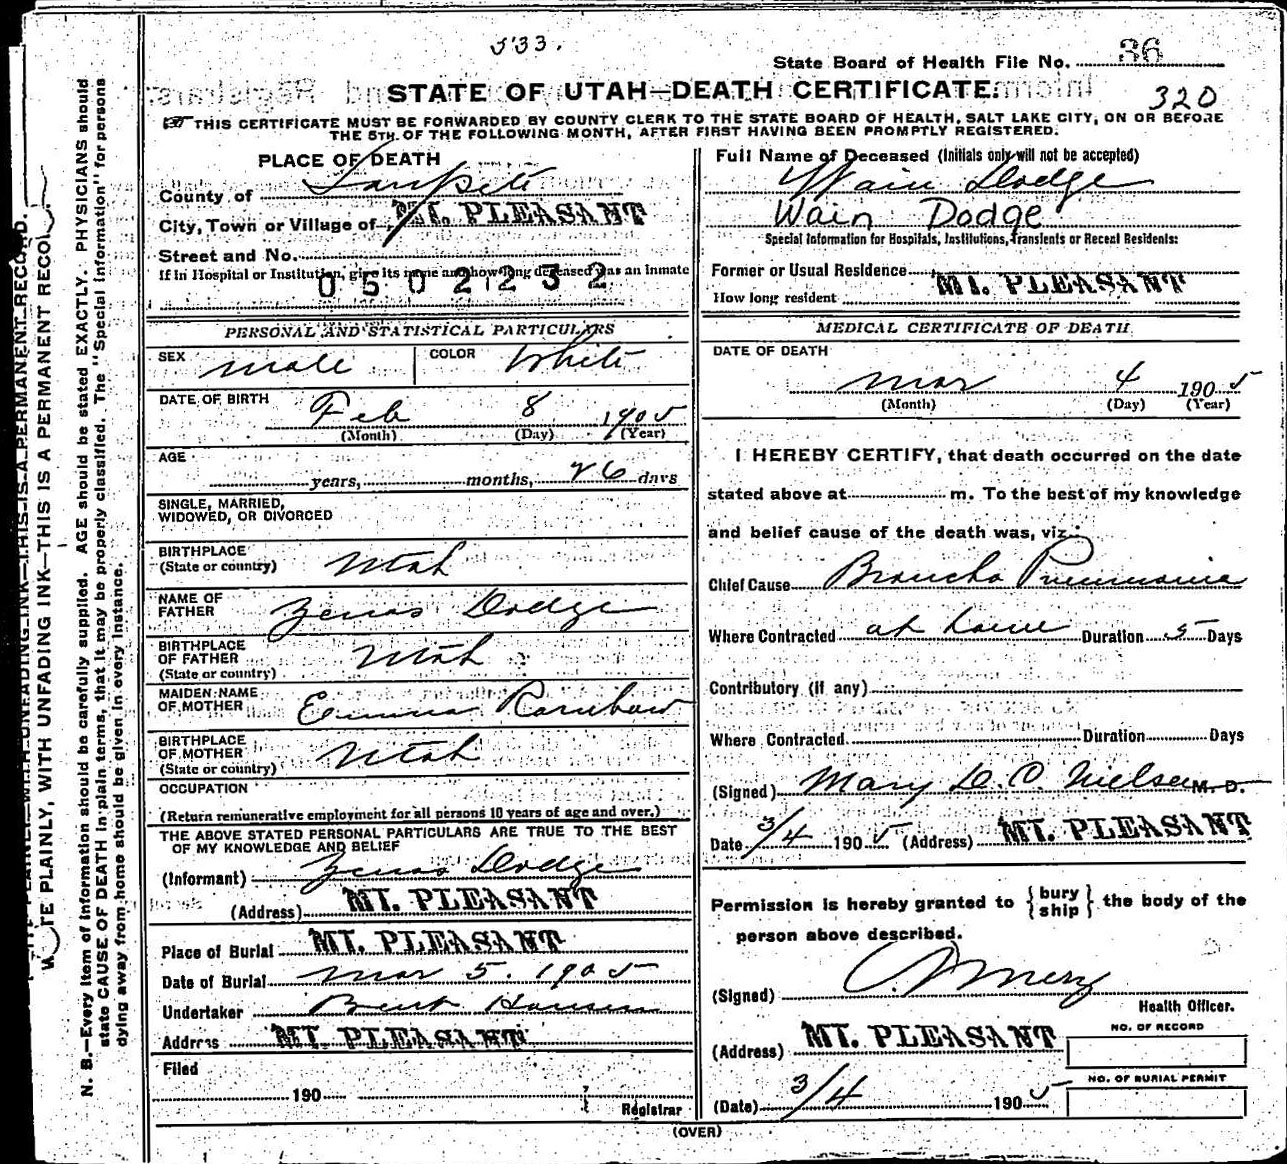 533.
State Board of Health File No. 36
STATE OF UTAH—DEATH CERTIFICATE.
320
THIS CERTIFICATE MUST BE FORWARDED BY COUNTY CLERK TO THE STATE BOARD OF HEALTH, SALT LAKE CITY, ON OR BEFORE
THE 5TH. OF THE FOLLOWING MONTH, AFTER FIRST HAVING BEEN PROMPTLY REGISTERED.
PLACE OF DEATH
County of Sanpete
City, Town or Village of MT. PLEASANT
Street and No.
If in Hospital or Institution, give its name and how long deceased was an inmate
0502232
PERSONAL AND STATISTICAL PARTICULARS
SEX male COLOR White
DATE OF BIRTH Feb 8 1905
(Month) (Day) (Year)
AGE
years, months, 26 days
SINGLE, MARRIED,
WIDOWED, OR DIVORCED
BIRTHPLACE
(State or country) Utah
NAME OF
FATHER Zenas Dodge
BIRTHPLACE
OF FATHER
(State or country) Utah
MAIDEN NAME
OF MOTHER Emma Rambow
BIRTHPLACE
OF MOTHER
(State or country) Utah
OCCUPATION
(Return remunerative employment for all persons 10 years of age and over.)
THE ABOVE STATED PERSONAL PARTICULARS ARE TRUE TO THE BEST
OF MY KNOWLEDGE AND BELIEF
(Informant) Zenas Dodge
(Address) MT. PLEASANT
Place of Burial MT. PLEASANT
Date of Burial Mar 5. 1905
Undertaker Bent Hansen
Address MT. PLEASANT
Filed
190
Registrar
Full Name of Deceased (Initials only will not be accepted)
Wain Dodge
Wain Dodge
Special Information for Hospitals, Institutions, Transients or Recent Residents:
Former or Usual Residence MT. PLEASANT
How long resident
MEDICAL CERTIFICATE OF DEATH
DATE OF DEATH
Mar 4 1905
(Month) (Day) (Year)
I HEREBY CERTIFY, that death occurred on the date
stated above at m. To the best of my knowledge
and belief cause of the death was, viz.:
Chief Cause Broncho Pneumonia
Where Contracted at home Duration 5 Days
Contributory (If any)
Where Contracted Duration Days
(Signed) Mary D. C. Nielsen M. D.
Date 3/4 1905 (Address) MT. PLEASANT
Permission is hereby granted to {bury
ship} the body of the
person above described.
(Signed)
Health Officer.
(Address) MT. PLEASANT
NO. OF RECORD
NO. OF BURIAL PERMIT
(Date) 3/4 1905
(OVER)
WRITE PLAINLY, WITH UNFADING INK—THIS IS A PERMANENT RECORD.
WRITE PLAINLY, WITH UNFADING INK—THIS IS A PERMANENT RECORD.
N. B.—Every item of information should be carefully supplied. AGE should be stated EXACTLY. PHYSICIANS should
state CAUSE OF DEATH in plain terms, that it may be properly classified. The "Special Information" for persons
dying away from home should be given in every instance.